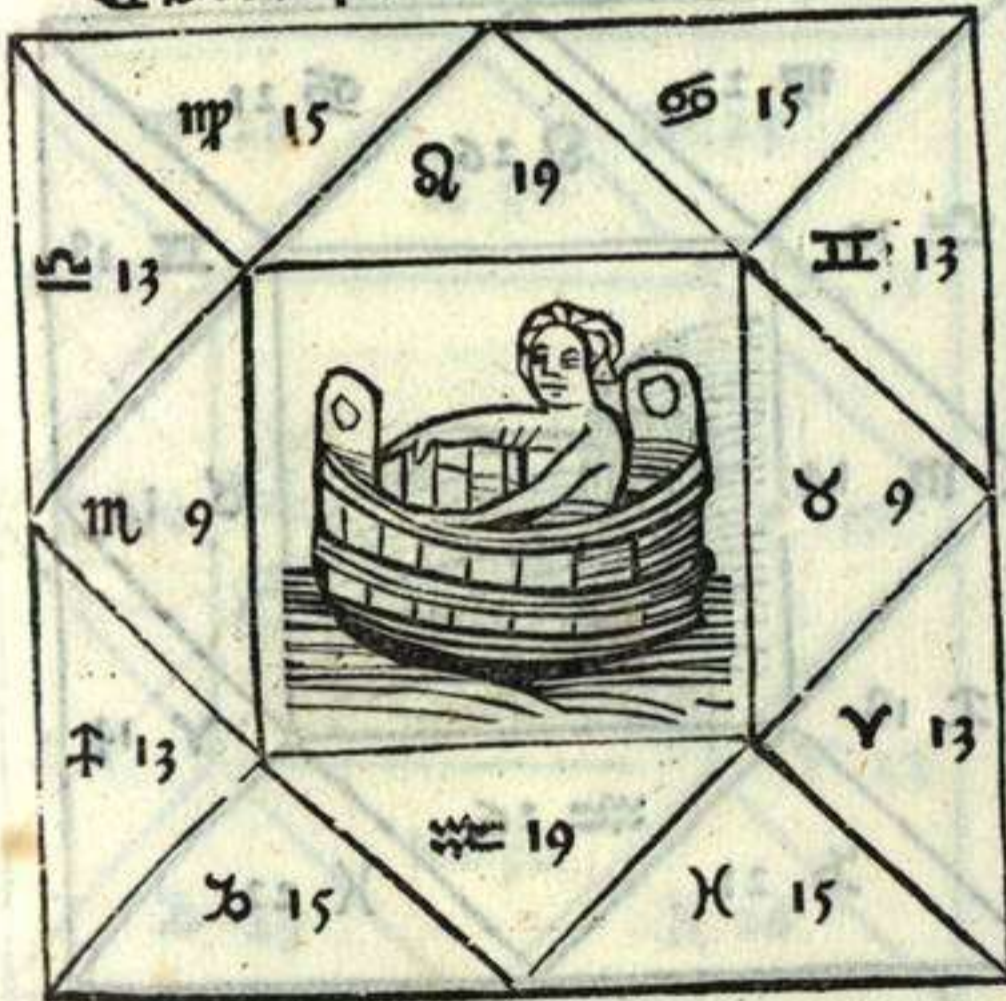 ♍ 15
♋ 15
♌ 19
♎ 13
♊ 13
♏ 9
♉ 9
♐ 13
♈ 13
♒ 19
♑ 15
♓ 15